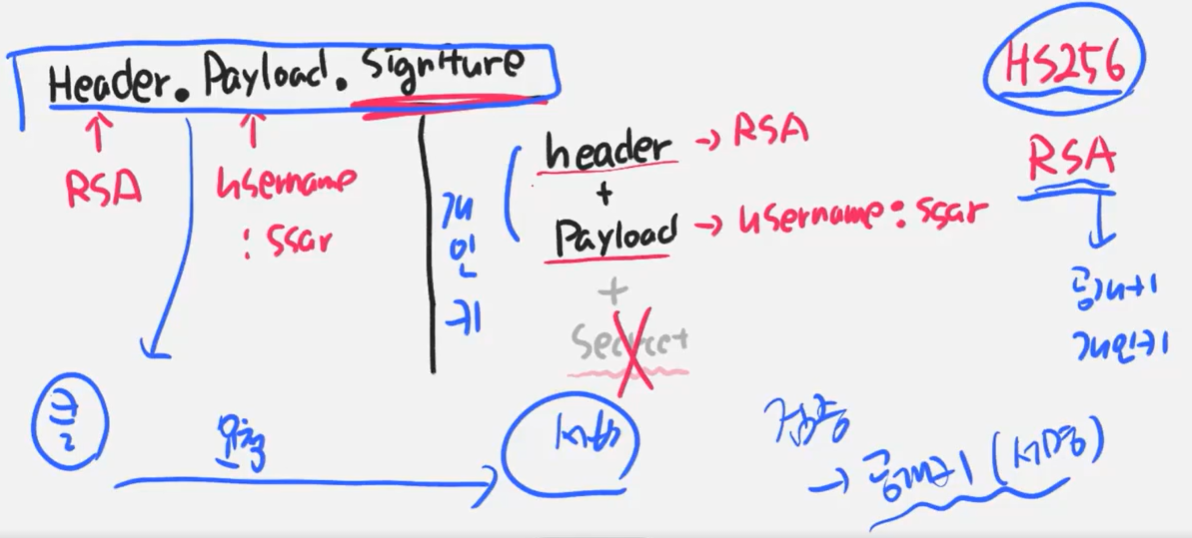 Header. Payload. Signiture
HS256
RSA
username
: ssar
개인키
header → RSA
+
Payload → username: ssar
+
Secret
RSA
공개키
개인키
클
요청
서버
검증
→ 공개키 (서명)